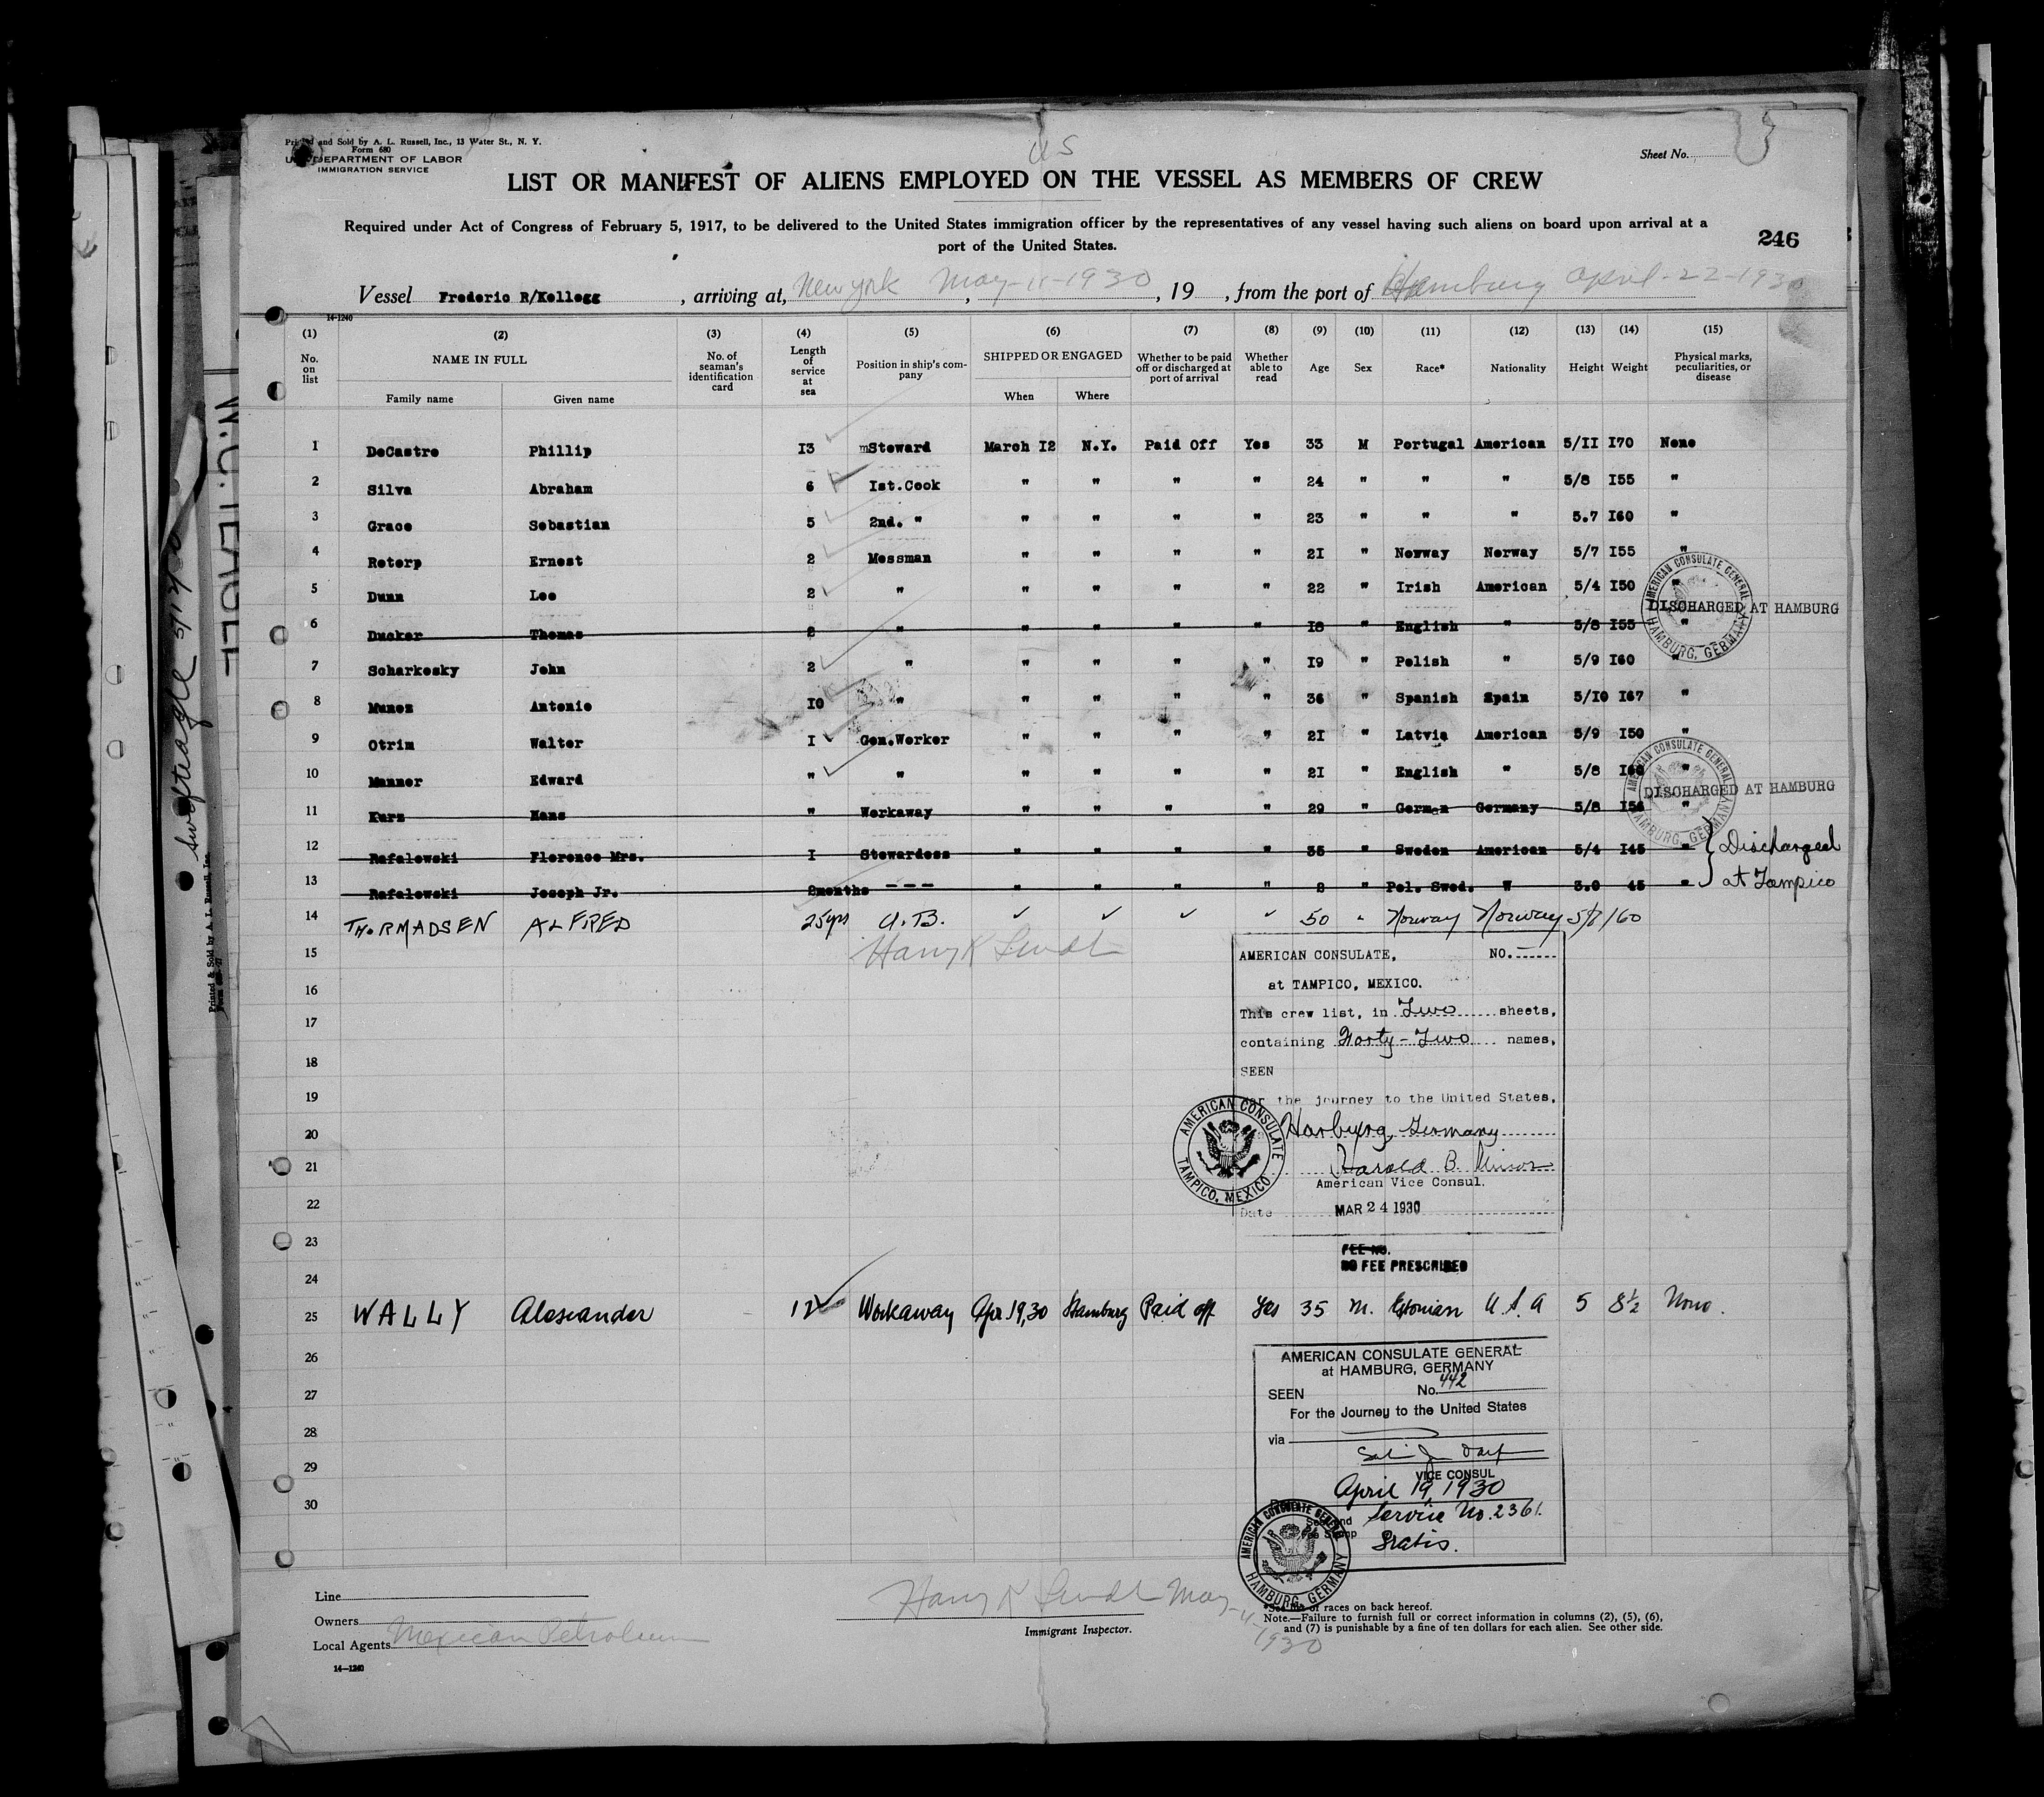 Printed and Sold by A. L. Russell, Inc., 13 Water St., N. Y.
Form 680
U. S. DEPARTMENT OF LABOR
IMMIGRATION SERVICE
US
Sheet No.
LIST OR MANIFEST OF ALIENS EMPLOYED ON THE VESSEL AS MEMBERS OF CREW
Required under Act of Congress of February 5, 1917, to be delivered to the United States immigration officer by the representatives of any vessel having such aliens on board upon arrival at a
port of the United States.
246
Vessel Frederic R/Kellogg, arriving at, New York May-11-1930, 19, from the port of Hamburg April-22-1930
14-1240
(1) (2) (3) (4) (5) (6) (7) (8) (9) (10) (11) (12) (13) (14) (15)
No. on list NAME IN FULL No. of seaman's identification card Length of service at sea Position in ship's company SHIPPED OR ENGAGED Whether to be paid off or discharged at port of arrival Whether able to read Age Sex Race* Nationality Height Weight Physical marks, peculiarities, or disease
Family name Given name When Where
1 DeCastro Phillip 13 mSteward March I2 N.Y. Paid Off Yes 33 M Portugal American 5/II I70 None
2 Silva Abraham 6 Ist.Cook " " " " 24 " " " 5/8 I55 "
3 Grace Sebastian 5 2nd. " " " " " 23 " " " 5.7 I60 "
4 Roterp Ernest 2 Messman " " " " 2I " Norway Norway 5/7 I55 "
5 Dunn Leo 2 " " " " " 22 " Irish American 5/4 I50 "
DISCHARGED AT HAMBURG
6 Ducker Thomas 2 " " " " " I8 " English " 5/8 I55 "
7 Scharkosky John 2 " " " " " I9 " Polish " 5/9 I60 "
8 Munoz Antonio I0 " " " " " 36 " Spanish Spain 5/I0 I67 "
9 Otrim Walter I Gen.Worker " " " " 2I " Latvia American 5/9 I50 "
10 Manner Edward " " " " " " 2I " English " 5/8 "
DISCHARGED AT HAMBURG
11 Kurz Hans " Workaway " " " " 29 " German Germany 5/8 I56 "
12 Rafalowski Florence Mrs. I Stewardess " " " " 35 " Sweden American 5/4 I45 " Discharged
13 Rafalowski Joseph Jr. 2months --- " " " " 2 " Pol. Swed. " 3.0 45 " at Tampico
14 THORMADSEN ALFRED 25yrs A.B. 50 " Norway Norway 5/8 160
15
16
17
18
19
20
21
22
23
24
AMERICAN CONSULATE, NO.
at TAMPICO, MEXICO.
This crew list, in Two sheets,
containing Forty-Two names,
SEEN
for the journey to the United States,
Harburg, Germany
Harold B. Minor
American Vice Consul.
Date MAR 24 1930
AMERICAN CONSULATE TAMPICO, MEXICO
FEE NO.
NO FEE PRESCRIBED
25 WALLY Alexander 12 Workaway Apr 19,30 Hamburg Paid off Yes 35 M. Estonian U.S.A 5 8½ None.
26
27
28
29
30
AMERICAN CONSULATE GENERAL
at HAMBURG, GERMANY
SEEN No. 442
For the Journey to the United States
via
VICE CONSUL
April 19, 1930
Service No. 2361.
Gratis.
AMERICAN CONSULATE GENERAL HAMBURG, GERMANY
AMERICAN CONSULATE GENERAL HAMBURG, GERMANY
AMERICAN CONSULATE GENERAL HAMBURG, GERMANY
Line
Owners
Local Agents Mexican Petroleum
14-1240
May-11-1930
Immigrant Inspector.
*See list of races on back hereof.
Note.—Failure to furnish full or correct information in columns (2), (5), (6),
and (7) is punishable by a fine of ten dollars for each alien. See other side.
Printed & Sold by A. L. Russell, Inc.